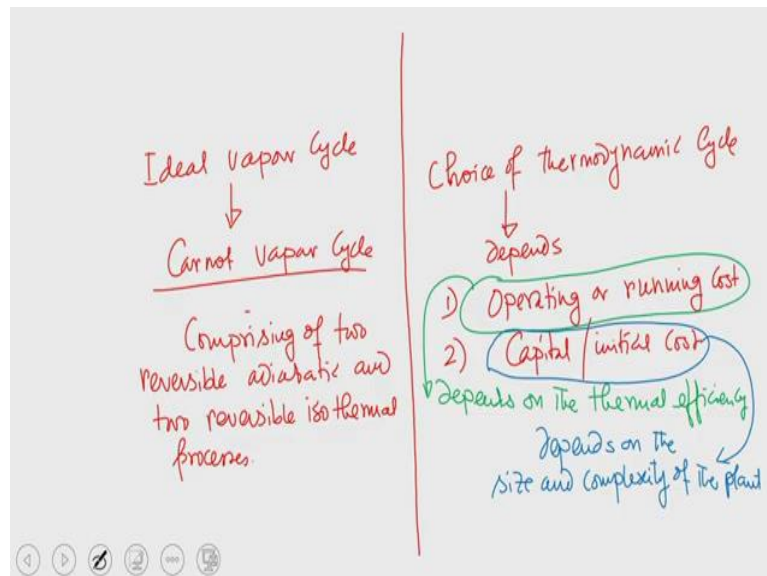 Ideal vapor Cycle
Carnot Vapor Cycle
Comprising of two
reversible adiabatic and
two reversible isothermal
processes.
Choice of thermodynamic Cycle
depends
1) Operating or running cost
2) Capital / initial cost
depends on the thermal efficiency
depends on the
size and complexity of the plant